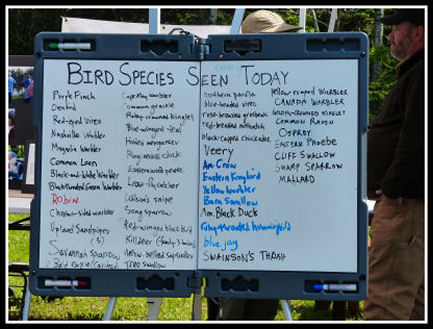 BIRD SPECIES SEEN TODAY
Purple Finch
Ovenbird
Red-eyed vireo
Nashville Warbler
Magnolia Warbler
Common Loon
Black-and-white Warbler
Black-throated Green Warbler
Robin
Chestnut-sided warbler
Upland Sandpiper
(3)
Savannah Sparrow
Bald Eagle
Cape May warbler
Common grackle
Ruby-crowned kinglet
Blue-winged teal
Hooded merganser
Ring-necked duck
Eastern wood pewee
Least flycatcher
Wilson's snipe
Song sparrow
Red-winged blackbird
Killdeer
Yellow-bellied sapsucker
Tree Swallow
northern parula
blue-headed vireo
rose-breasted grosbeak
red-breasted nuthatch
black-capped chickadee
Veery
Am. Crow
Eastern Kingbird
Yellow warbler
Barn Swallow
Am. Black Duck
Ruby-throated hummingbird
blue jay
SWAINSON'S THRUSH
yellow-rumped Warbler
CANADA WARBLER
GOLDEN-CROWNED KINGLET
COMMON RAVEN
OSPREY
EASTERN PHOEBE
CLIFF SWALLOW
SWAMP SPARROW
MALLARD